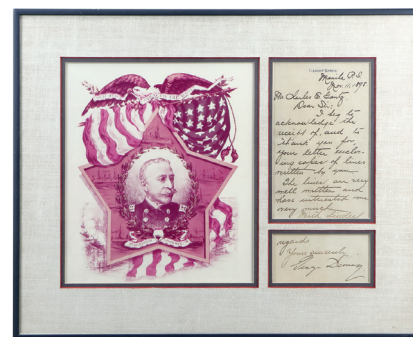 Manila P.I.
Nov. 11, 1898
Dear Sir;
I beg to
acknowledge the
receipt of, and to
thank you for,
your letter enclos-
ing copies of lines
written by you.
The lines are very
well written and
have interested me
very much.
With kindest
regards
Yours sincerely
George Dewey